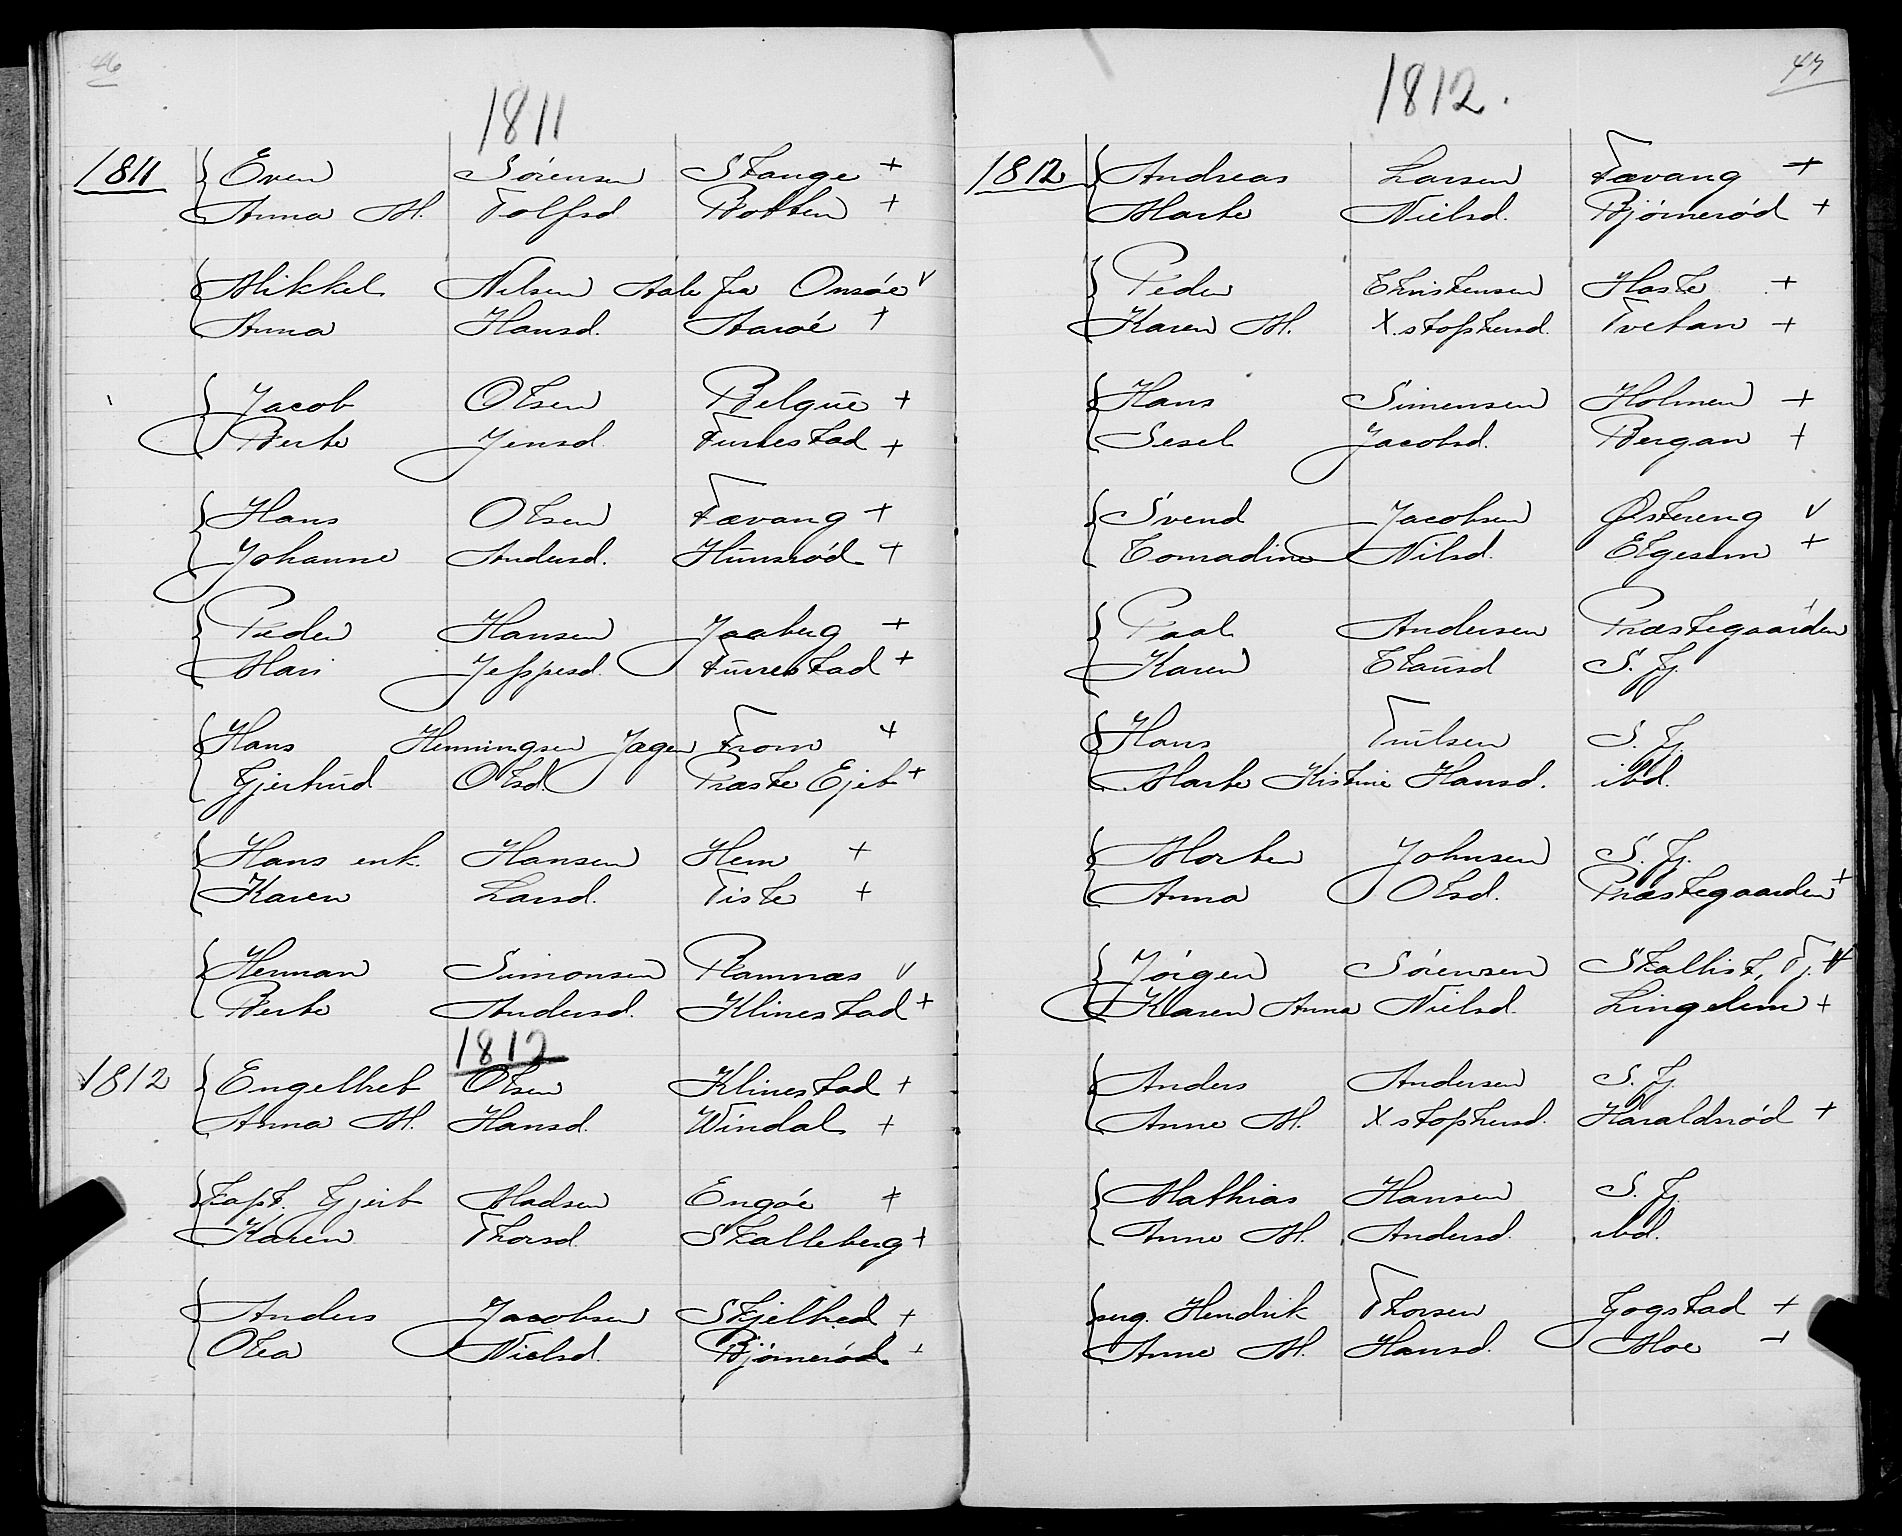 46
1811
1811 Even Sörensen Stange +
Anna M. Tolfsd Botten +
Mikkel Nilsen Aale fra Onsöe v
Anna Hansd. Aaröe +
Jacob Olsen Belgüe +
Berte Jensd. Furrestad +
Hans Olsen Fævang +
Johanne Andersd. Hünsröd +
Peder Hansen Jaaberg +
Mari Jeppesd. Fürrestad +
Hans Henningsen Jagen From +
Gjertrud Olsd. Præste Ejet +
Hans enk. Hansen Hem +
Karen Larsd. Tiste +
Herman Simonsen Ramnæs v
Berte Andersd. Klinestad +
1812
1812 Engelbret Olsen Klinestad +
Anna M. Hansd. Windal +
Kapt. Gjert Madsen Engöe +
Karen Thorsd. Skalleberg +
Anders Jacobsen Skjelbred +
Olea Nielsd. Bjørneröd +
47
1812.
1812 Andreas Larsen Fævang +
Marte Nielsd. Bjørneröd +
Peder Christensen Haste +
Karen M. X.stophersd. Tvetan +
Hans Simensen Holmen +
Sesel Jacobsd. Bergan +
Svend Jacobsen Østereng v
Nilsd. Elgesem +
Paal Andersen Præstegaarden
Karen Clausd S. Fj.
Hans Trulsen S. Fj.
Marte Kistine Hansd. ibd.
Morten Johnsen S. Fj.
Anna Olsd. Præstegaarden +
Jörgen Sörensen Skallist, Tj.
Karen Anna Nielsd. Lingelem +
Anders Andersen S. Fj.
Anne M. X stophersd. Haraldsröd +
Mathias Hansen S. Fj.
Anne M. Andersd. ibd.
Hendrik Thorsen Gogstad +
Anne M. Hansd. Moe +